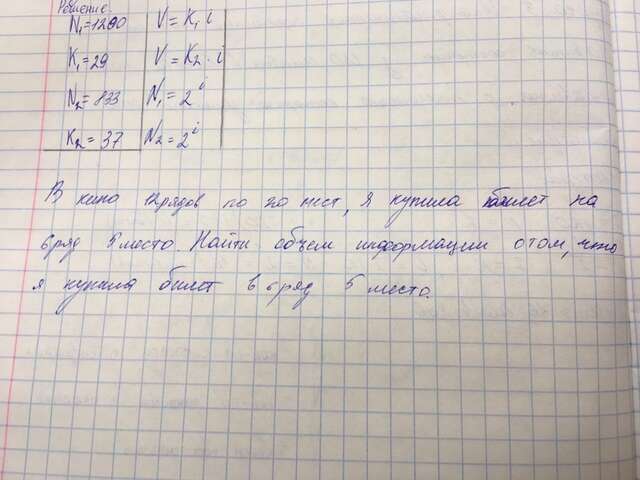 Решение.
N₁=1200 V=K₁ i
K₁=29 V=K₂·i
N₂=833 N₁=2ⁱ
K₂=37 N₂=2ⁱ
В кино 12рядов по 20 мест, Я купила билет на
6ряд 5место. Найти объем информации отом, что
я купила билет в 6 ряд 5 место.